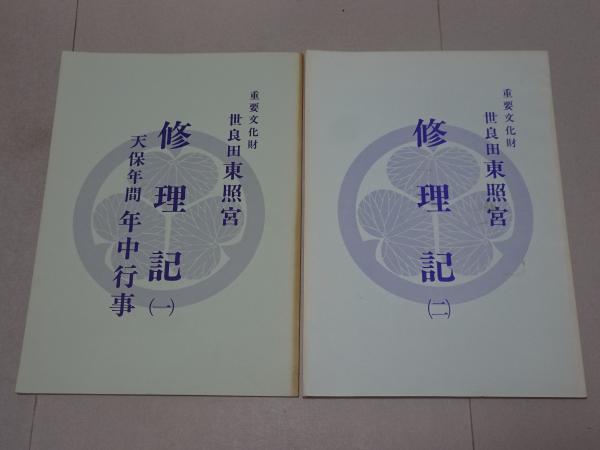 重要文化財
世良田東照宮
修理記(一)
天保年間 年中行事
重要文化財
世良田東照宮
修理記(二)